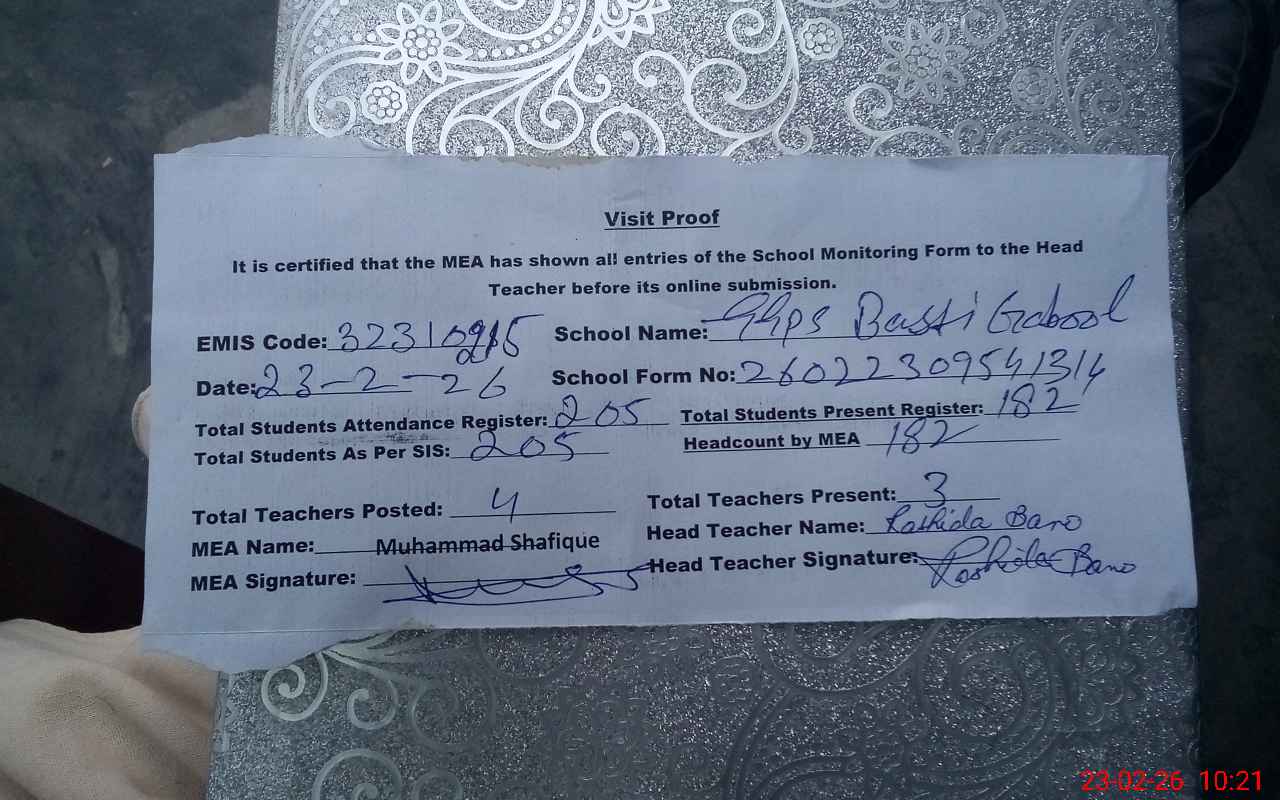 Visit Proof
It is certified that the MEA has shown all entries of the School Monitoring Form to the Head
Teacher before its online submission.
EMIS Code: School Name: GGPS Basti Gabool
Date: 23-2-26 School Form No: 26022309541314
Total Students Attendance Register: 205 Total Students Present Register: 182
Total Students As Per SIS: 205 Headcount by MEA 182
Total Teachers Posted: 4 Total Teachers Present: 3
MEA Name: Muhammad Shafique Head Teacher Name: Rashida Bano
MEA Signature: Head Teacher Signature: Rashida Bano
23-02-26 10:21